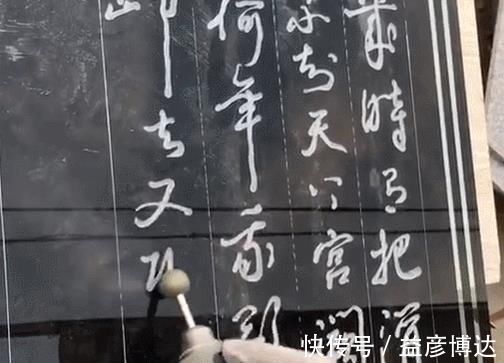 幾時有把酒
不知天上宫闕
何年我欲
去又
快传号／益彦博达